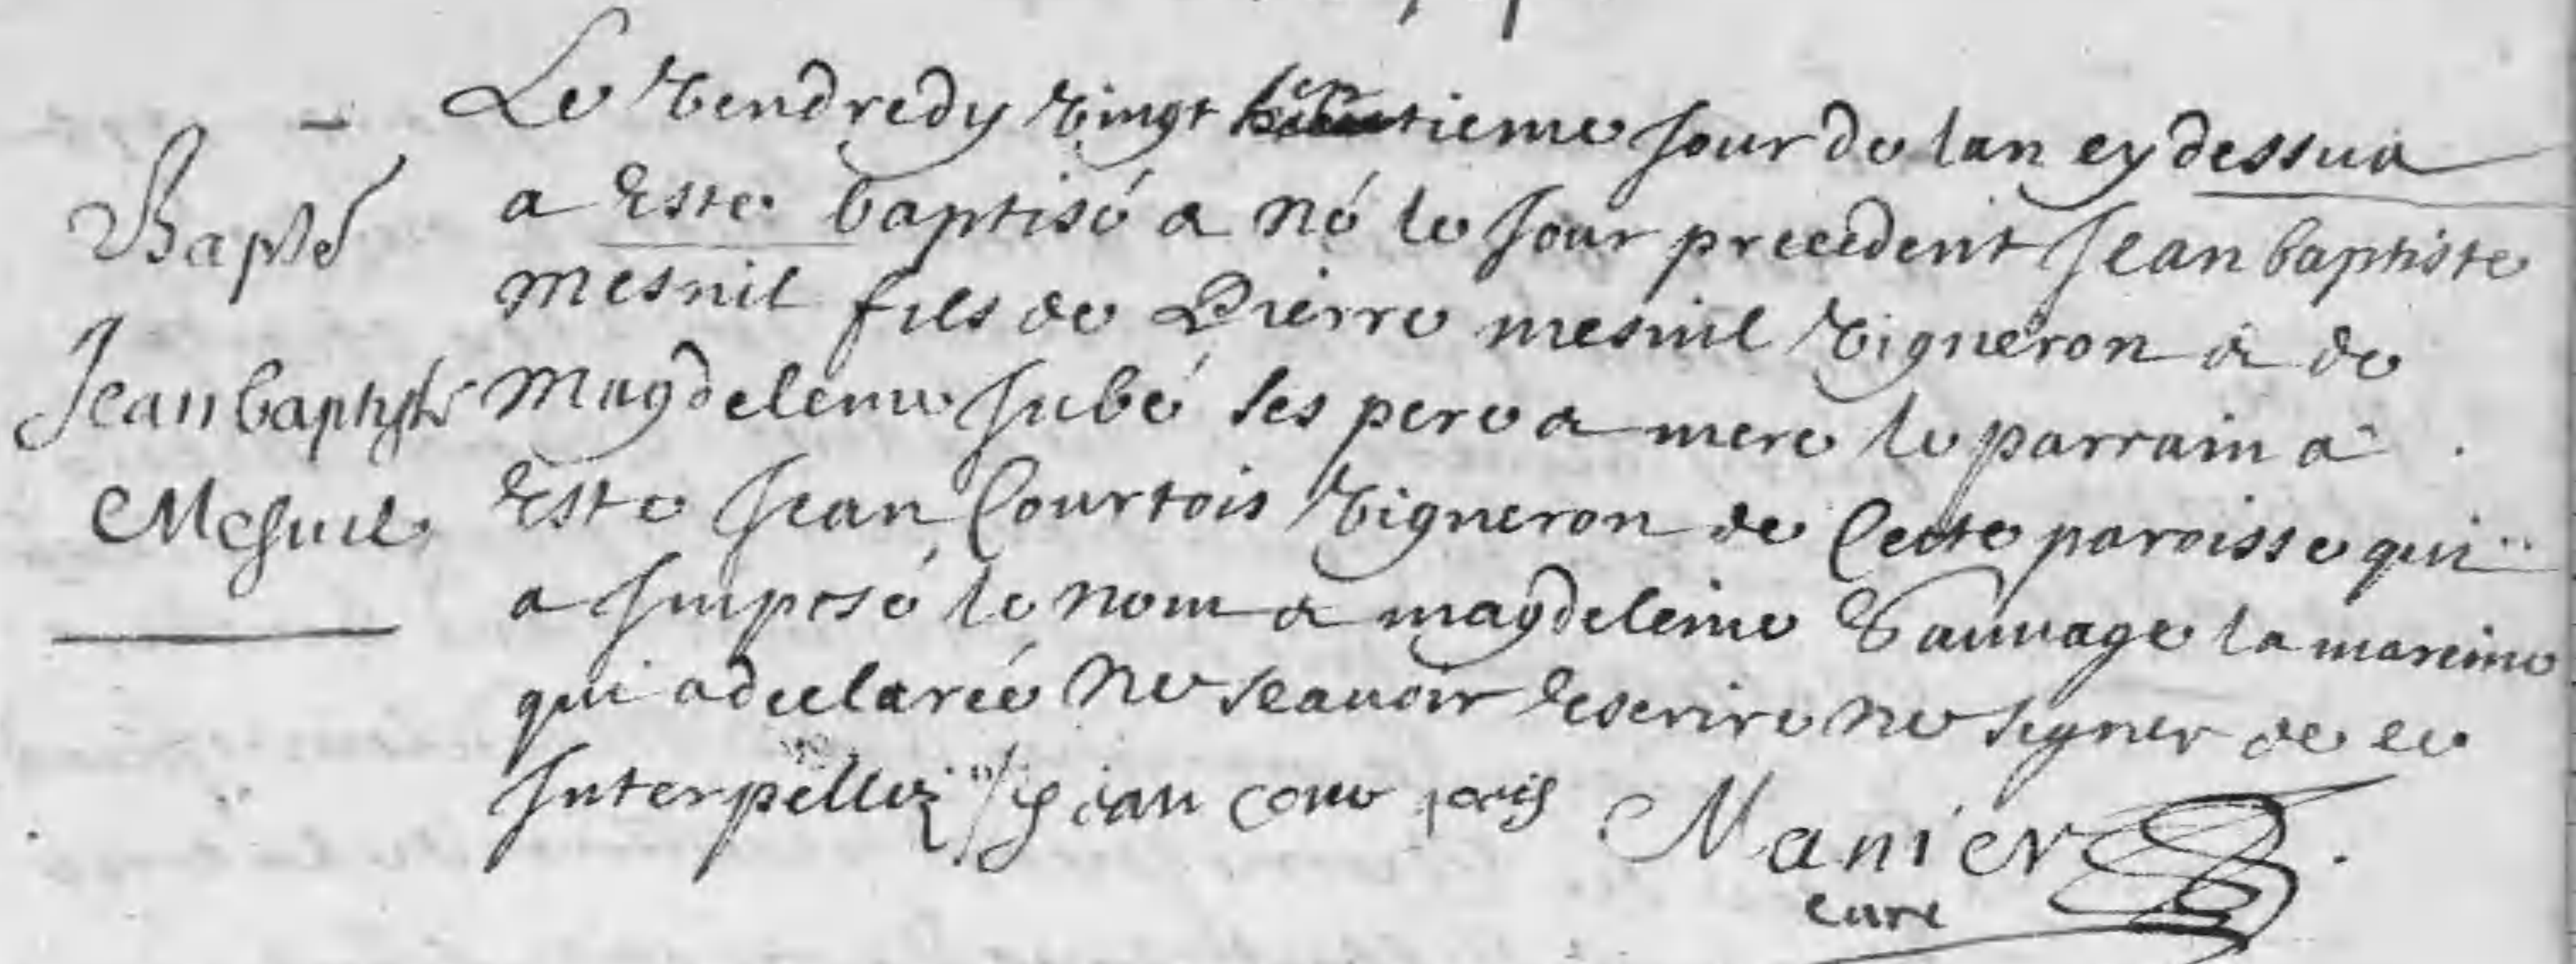 Le Vendredy Vingt huitieme Jour de lan cy dessus
a Este baptisé & né le Jour precedent Jean baptiste
mesnil fils de Pierre mesnil Vigneron & de
Magdeleine Jubé ses pere & mere le parrain a
Esté Jean Courtois Vigneron de Cette paroisse qui
a Imposé le nom & magdeleine Sauvage la mareine
qui a declareé ne scavoir Escrire ne signer de ce
Interpellez Jean cour tois
Manier
curé
Bapté
Jean baptiste
Mesnil